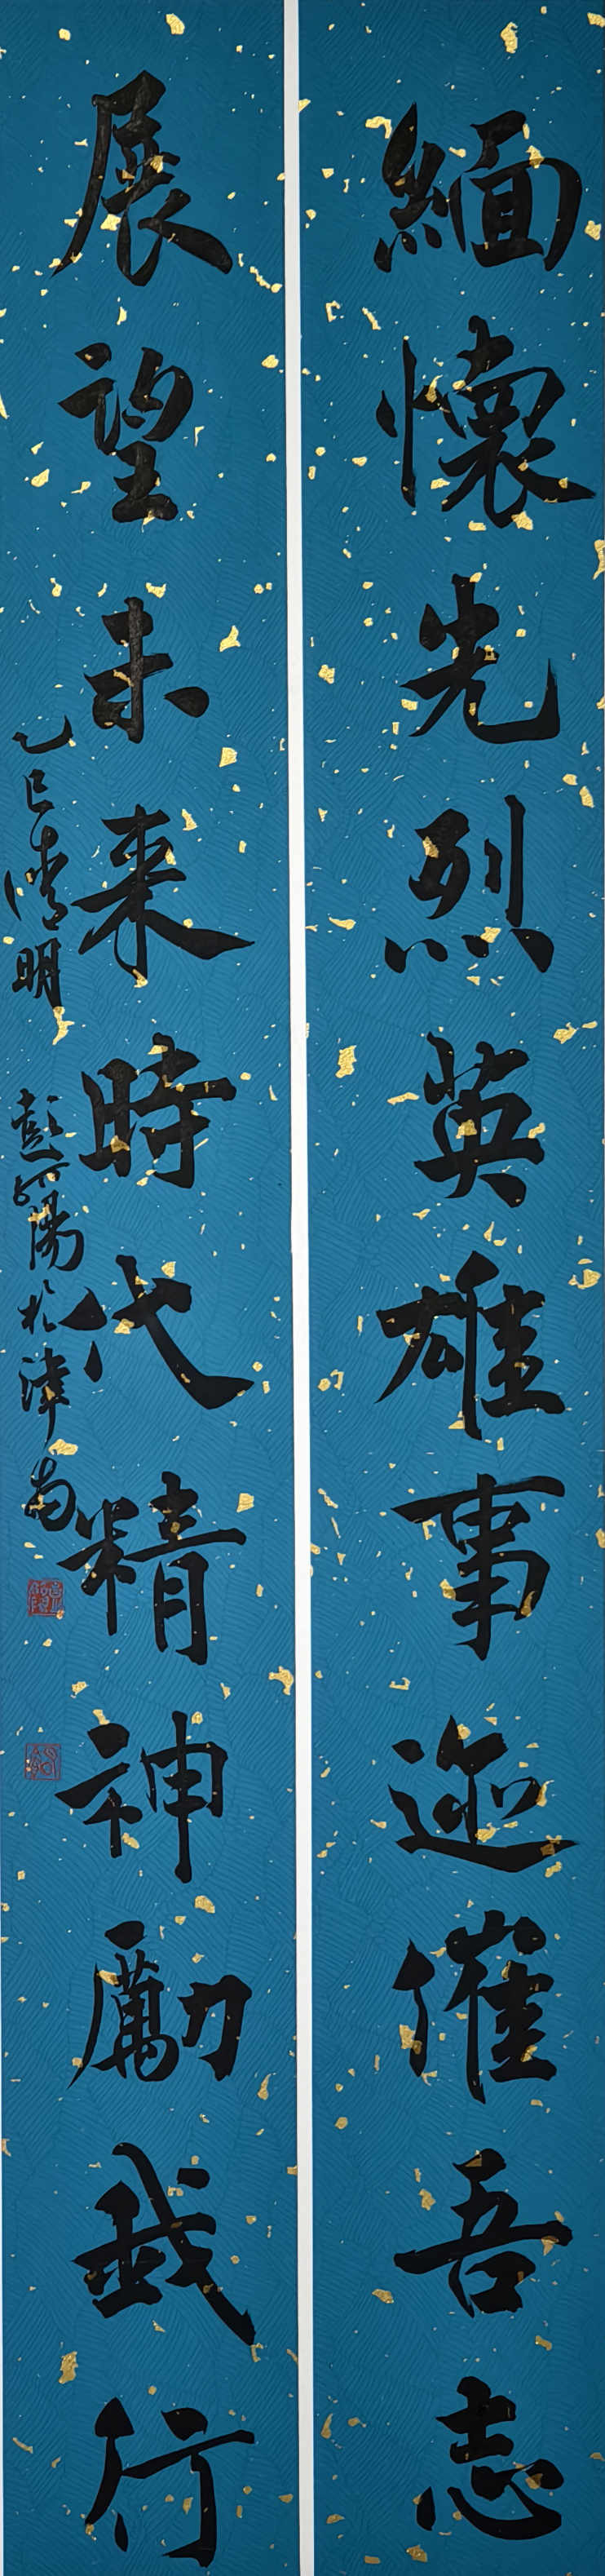 緬懷先烈英雄事迹催吾志
展望未來時代精神勵我行
乙巳清明
彭陽於津南